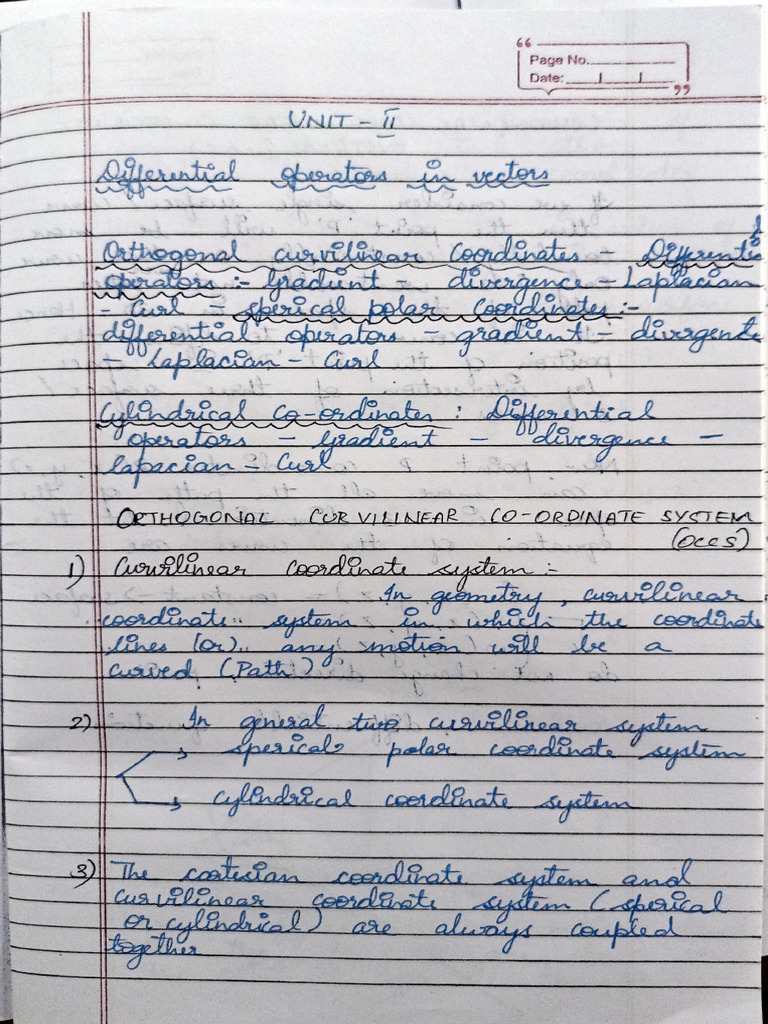 Page No.
Date:
UNIT - II
Differential operators in vectors
Orthogonal curvilinear coordinates - Differential
operators :- Gradient - divergence - Laplacian
- Curl - sperical polar coordinates :-
differential operators - gradient - divergence
- Laplacian - Curl
Cylindrical Co-ordinates : Differential
operators - gradient - divergence -
lapacian - Curl
ORTHOGONAL CURVILINEAR CO-ORDINATE SYSTEM
(OCCS)
1) Curvilinear coordinate system :-
In geometry, curvilinear
coordinate system in which the coordinate
lines (or) any (motion) will be a
curved (Path)
2) In general two curvilinear system
sperical polar coordinate system
cylindrical coordinate system
3) The cartesian coordinate system and
curvilinear coordinate system (sperical
or cylindrical) are always coupled
together